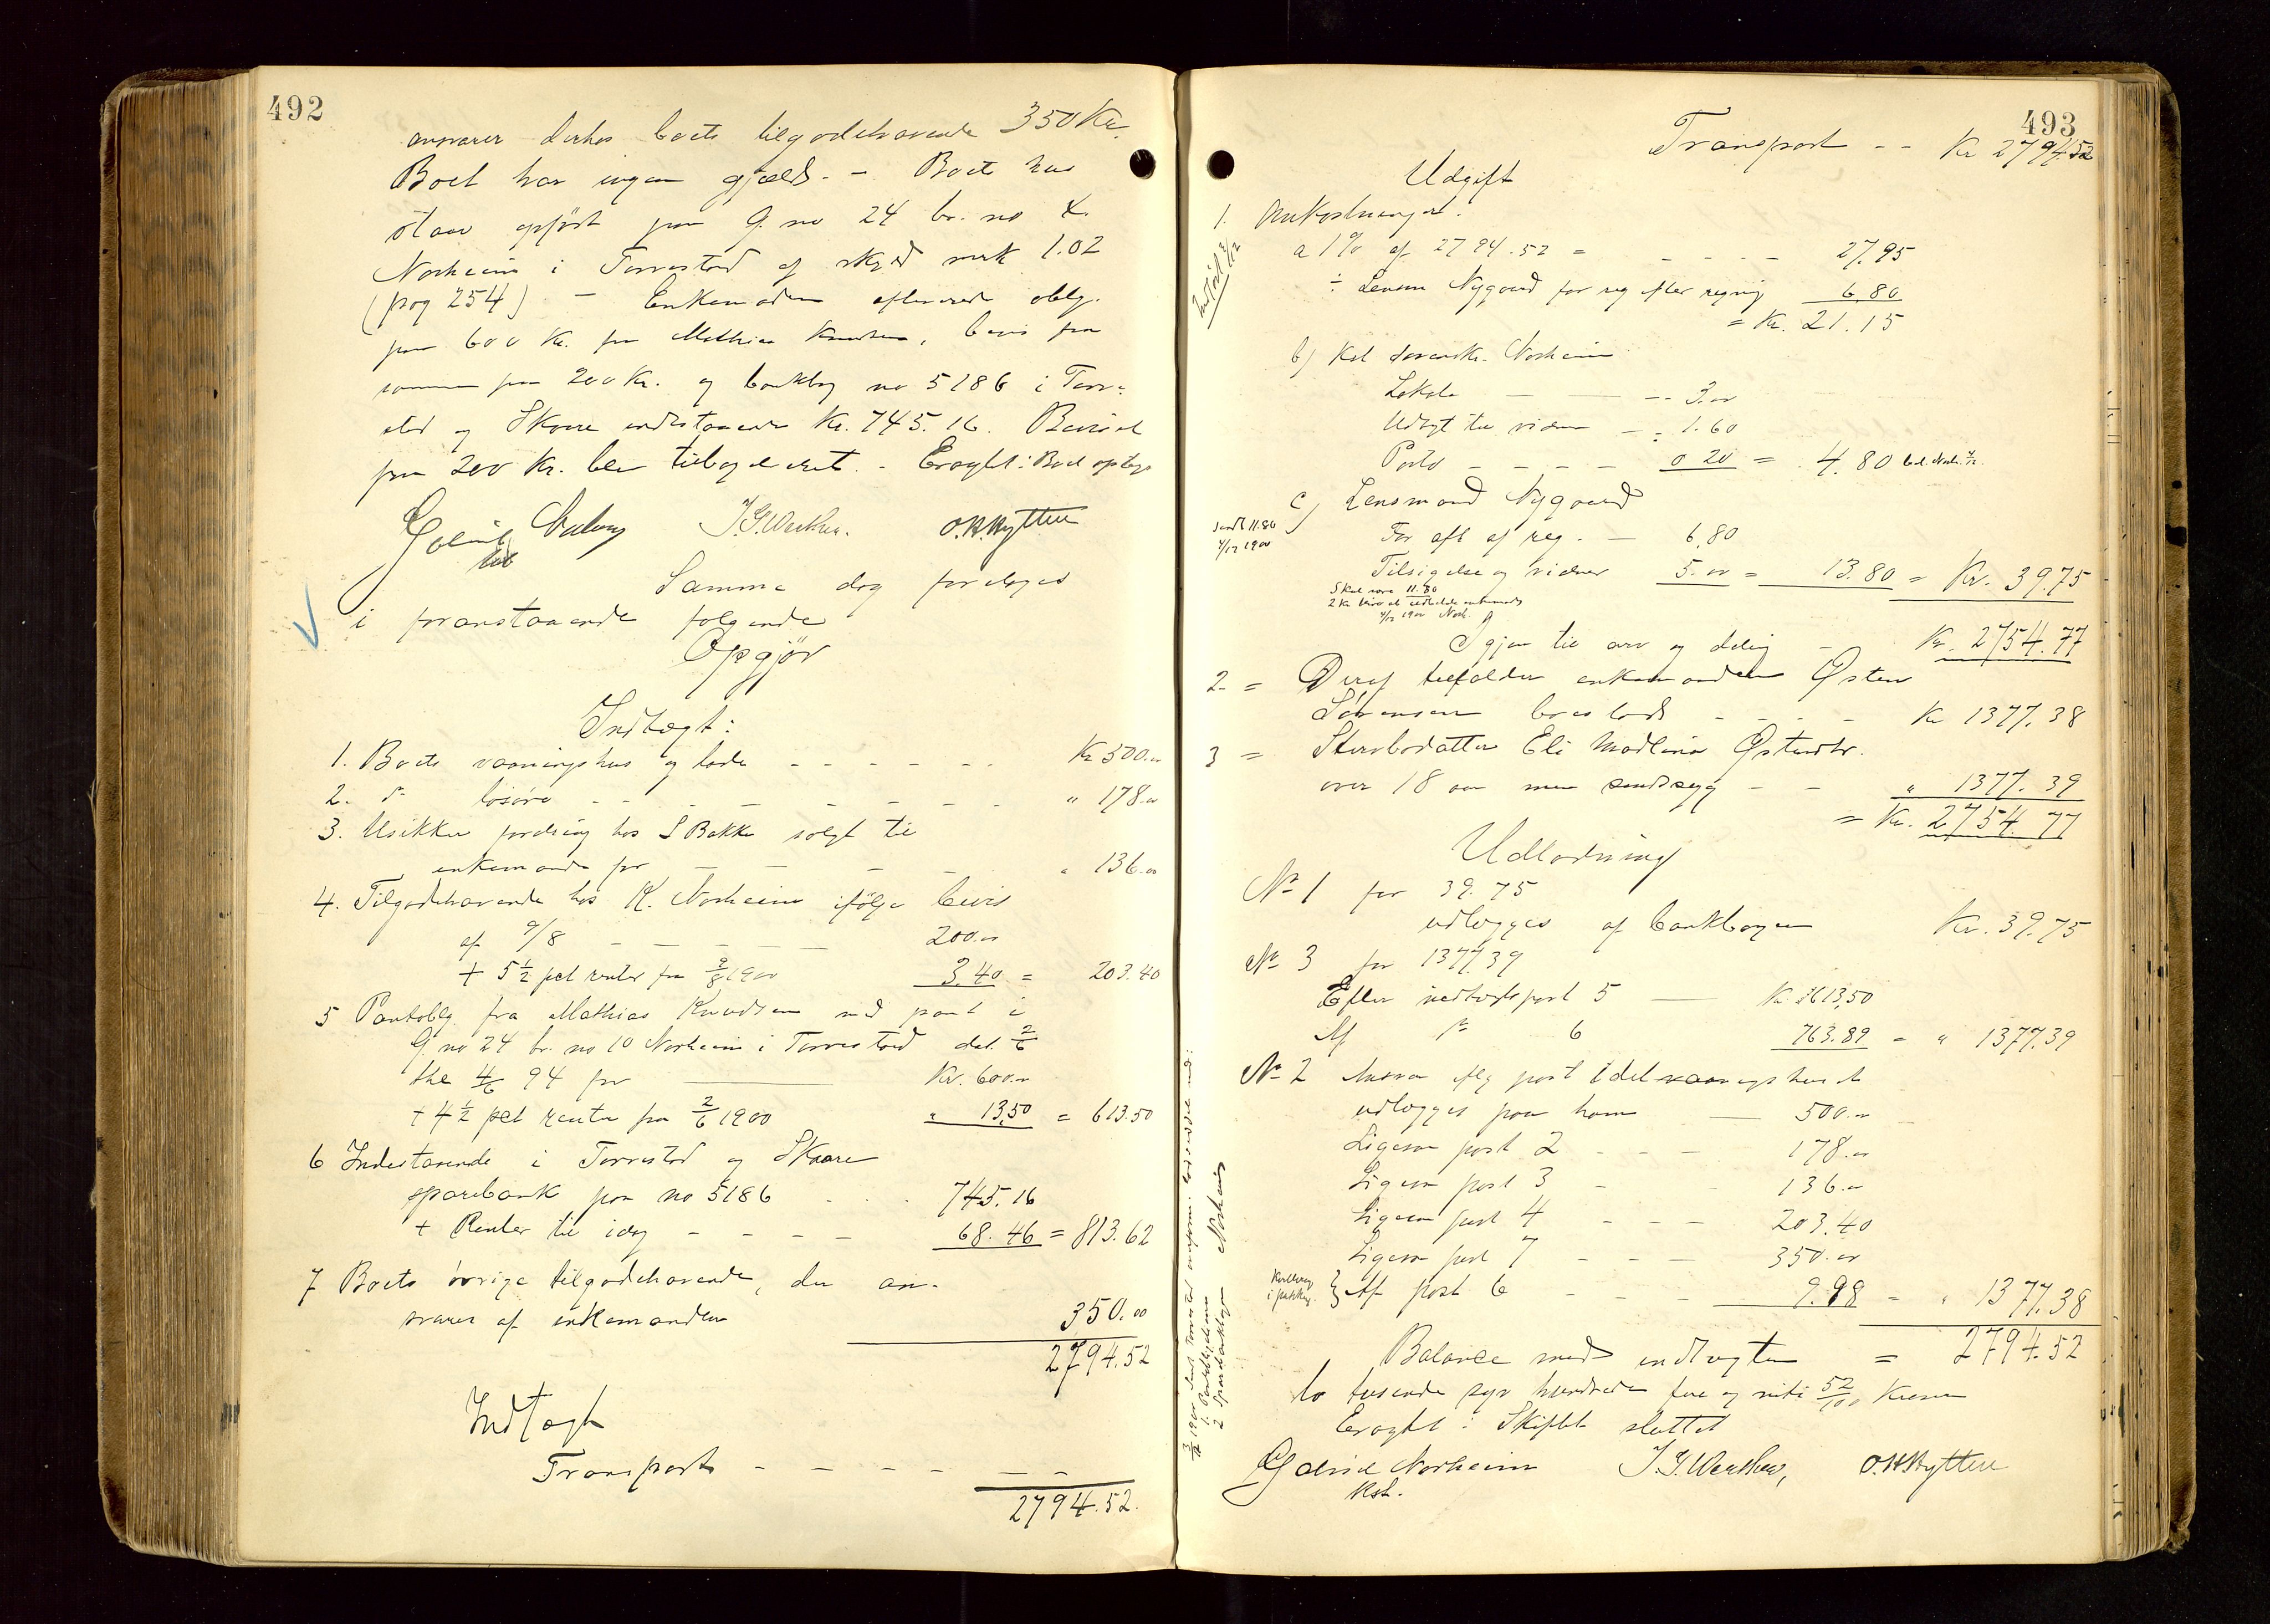 492
ansvarer derhos boets tilgodehavende 350 Kr.
Boet har ingen gjæld. - Boets hus
staar opført paa G. no 24 br. no 4.
Norheim i Torvestad af skyld mark 1.02
(pag 254) - Enkemanden afleverede oblg.
paa 600 Kr. fra Mathias Knudsen, bevis fra
samme paa 200 Kr. og bankbog no 5186 i Torve-
stad og Skaare indestaaende Kr. 745.16. Beviset
paa 200 Kr. blev tilbageleveret. - Eragtet: Boet optages
O.K. Kyttere
Samme dag foreloges
i foranstaaende følgende
Opgjör
Indtægt:
1. Boets vaaningshus og lade - - - - - - Kr 500.00
2. do løsøre - - - - - - - " 178.00
3. Usikker fordring hos S Bakke solgt til
enkemanden for - - - - " 136.00
4. Tilgodehavende hos K. Norheim ifølge bevis
af 9/8 - - - - - 200.00
+ 5 1/2 pct renter fra 1900 3.40 = 203.40
5 Pantoblg. fra Mathias Knudsen med pant i
G. no 24 br. no 10 Norheim i Torvestad dat. 2/6
thl 4/6 94 for Kr. 600.00
+ 4 1/2 pct rente fra 2/6 1900 " 13.50 = 613.50
6 Indestaaende i Torvestad og Skaare
sparebank paa no 5186 - - - 745.16
+ Renter til idag - - - - 68.46 = 813.62
7 Boets øvrige tilgodehavende, der an-
svares af enkemanden 350.00
2794.52
Indtægt
Transport - - - - - -
2794.52.
493
Transport - - Kr 2794.52
Udgift
1. Omkostninger.
a 1% af 2794.52 = - - - - 27.95
÷ Lensm Nygaard for reg efter regning 6.80
= Kr. 21.15
b) Norheim
Lokale - - - 3.00
Udlagt til vidner - - 1.60
Porto - - - - 0 20 = 4.80
c) Lensmand Nygaard
sendt 11.80
4/12 1900
For aft af reg. - 6.80
Tilsigelse og vidner 5.00 = 13.80 = Kr. 39.75
Skal være 11.80
4/12 1900 Norh.
Igjen til arv og deling - Kr. 2754.77
2 = Deraf tilfalder enkemanden Østen
Sørensen boeslod - - - - Kr 1377.38
3 = Stervbodatter Eli Madline Østensdtr.
over 18 aar men sindssyg - - " 1377.39
= Kr. 2754.77
Udlodning
No 1 for 39.75
udlægges af bankbogen Kr. 39.75
No 3 for 1377.39
Efter indtægtspost 5 Kr. 613.50
Af do 6 763.89 = " 1377.39
No 2 post 1 det vaaningshus
udlægges paa ham 500.00
Ligesaa post 2 - - - 178.00
Ligesaa post 3 - 136.00
Ligesaa post 4 - - - 203.40
Ligesaa post 7 - - - 350.00
Af post 6 - - - 9.98 = " 1377.38
Balance med indtægten = 2794.52
to tusende syv hundrede fire og niti 52/100 Kroner
Eragtet: Skiftet sluttet
Gabriel Norheim
O.K. Kyttere
kst.